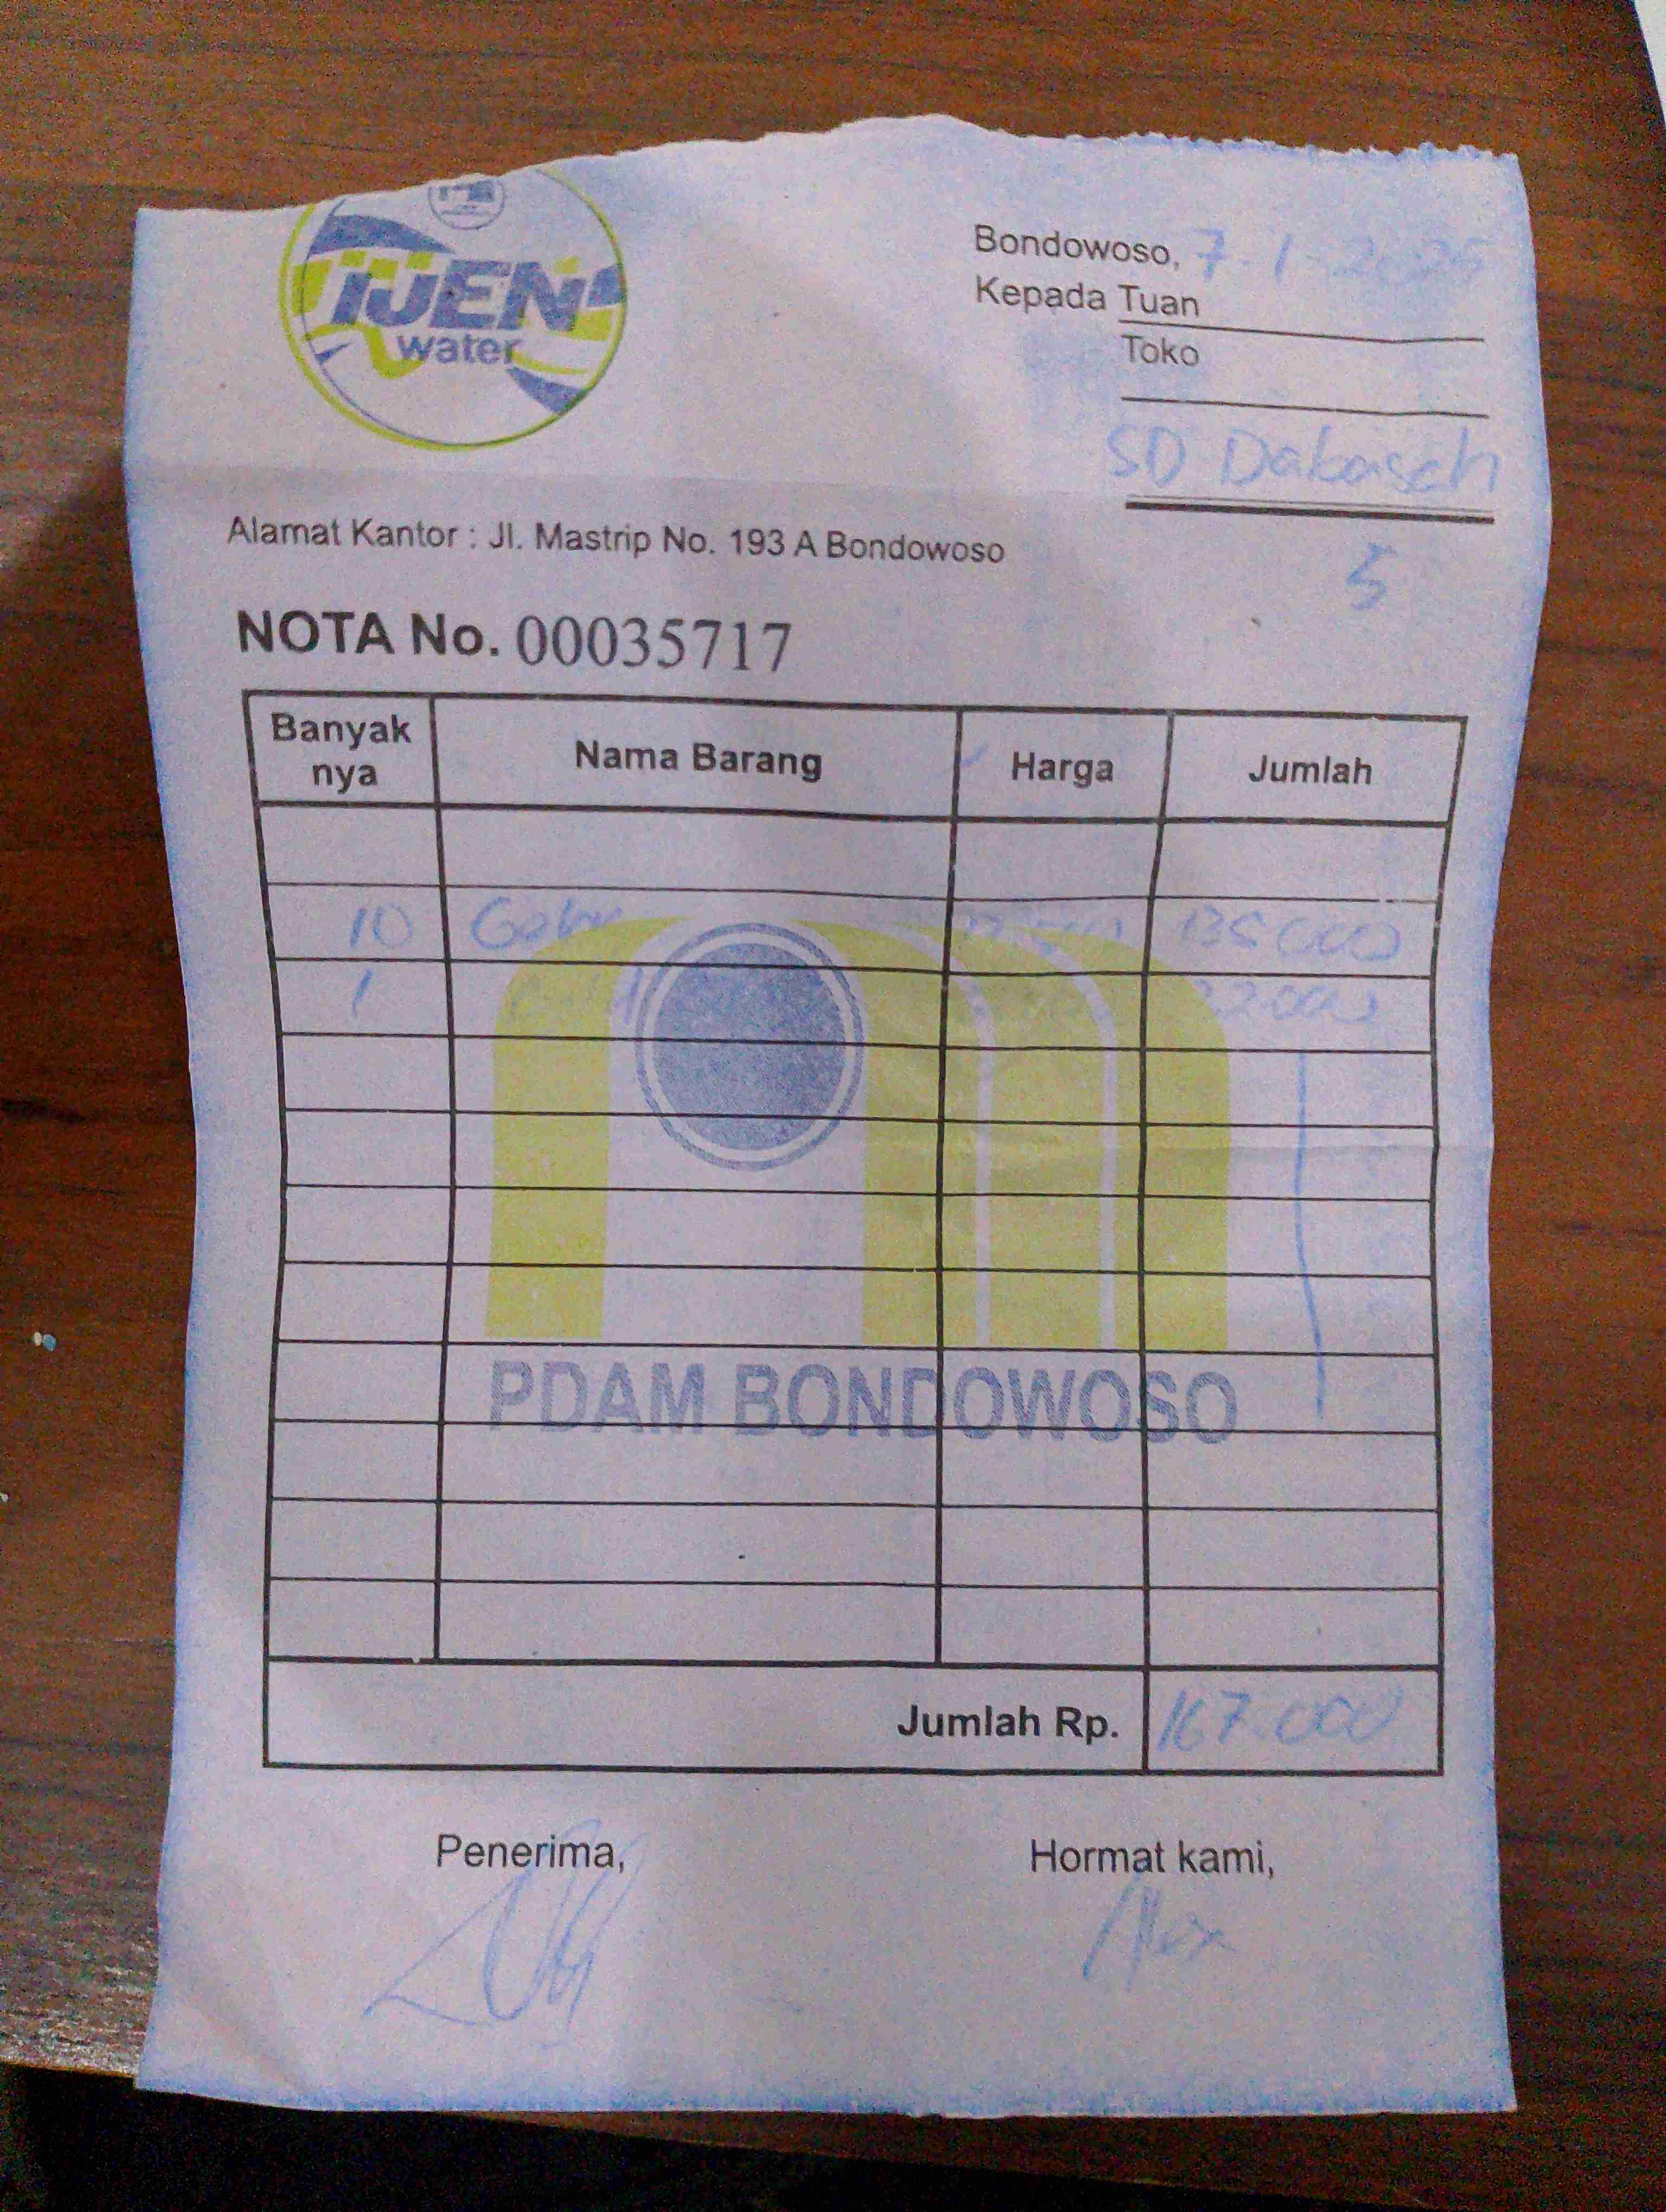 IJEN
water
Bondowoso, 7-1-2025
Kepada Tuan
Toko
SD Dabasah
5
Alamat Kantor : Jl. Mastrip No. 193 A Bondowoso
NOTA No. 00035717
Banyak nya Nama Barang Harga Jumlah
10 135000
1 32000
PDAM BONDOWOSO
Jumlah Rp. 167.000
Penerima, Hormat kami,